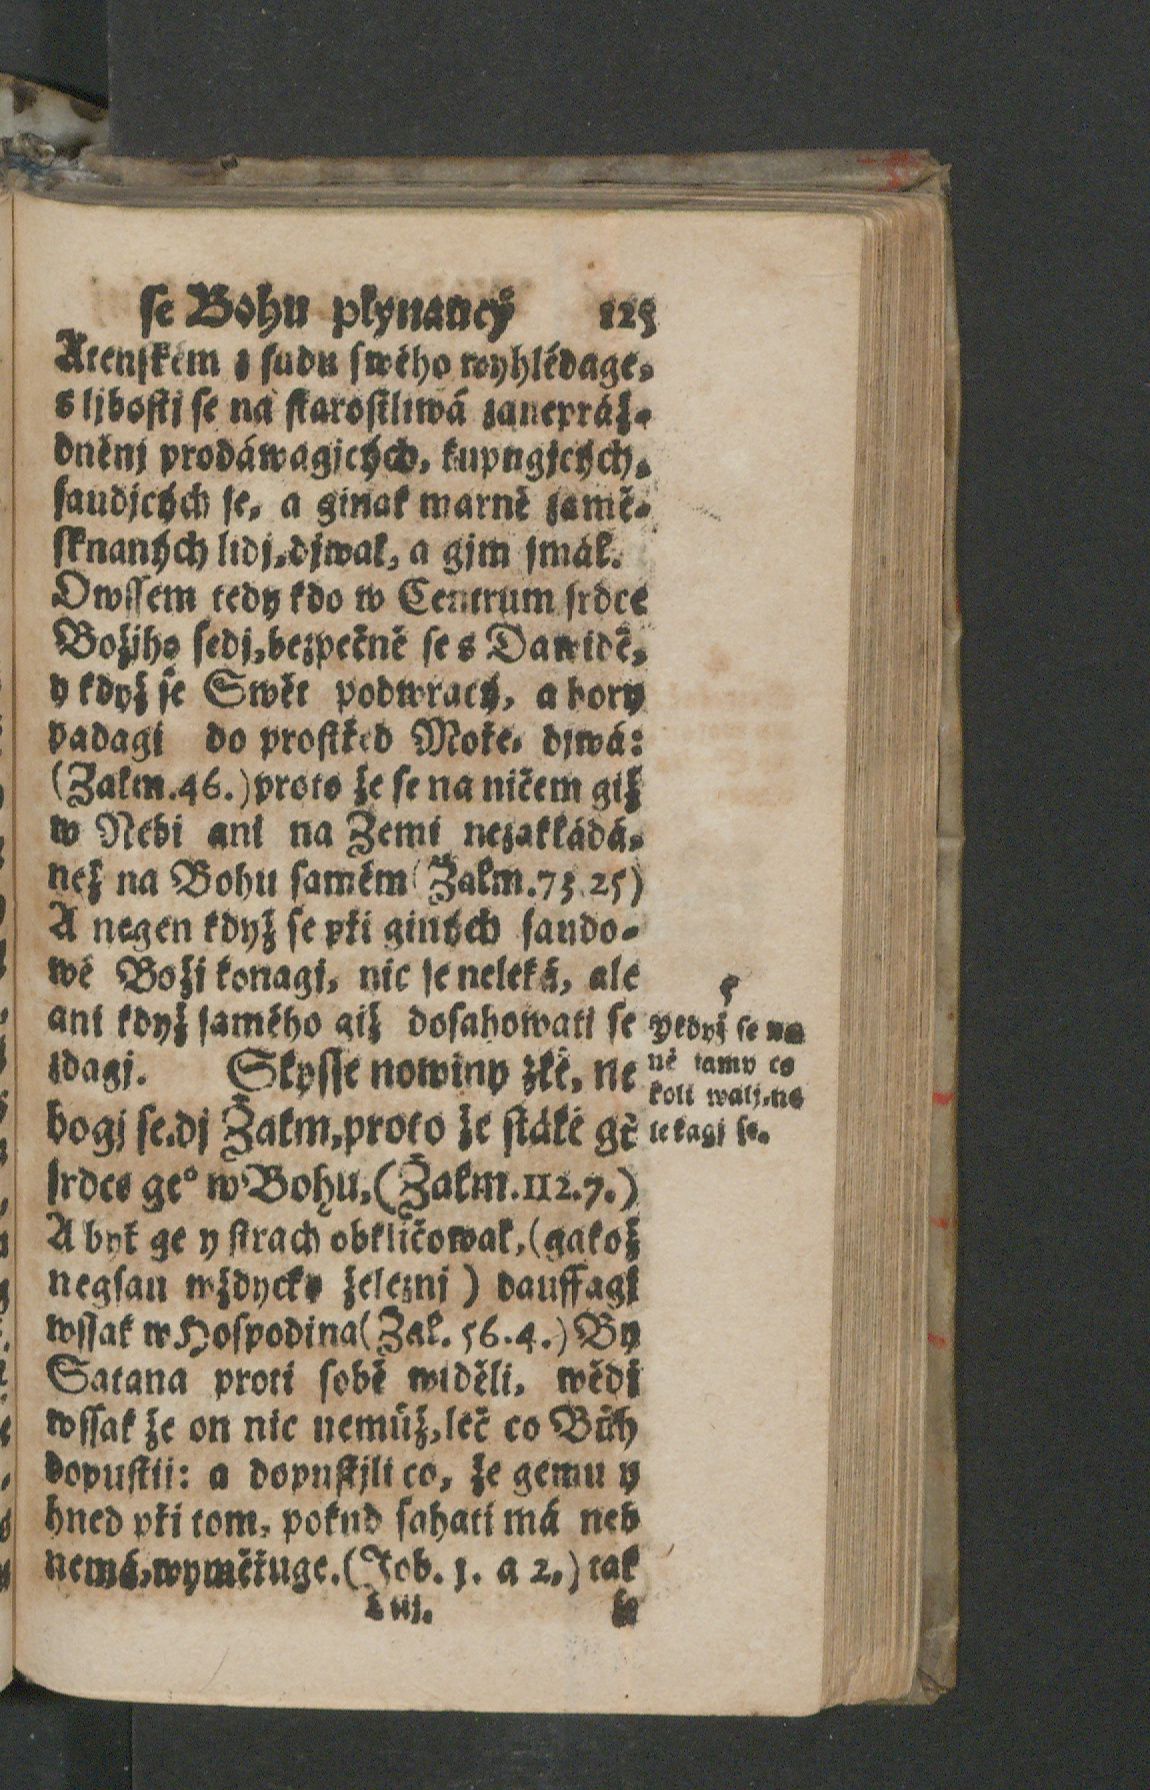 se Bohu plynaucý 125
Atenském z sudu swého wyhlédage,
s ljbostj se na starostliwá zanepráž-
dněnj prodáwagjcých, kupugjcých,
saudjcých se, a ginak marně zamě-
sknaných lidj, djwal, a gjm smál.
Owssem tedy kdo w Centrum srdce
Božjho sedj, bezpečně se s Dawidẽ,
y když se Swět podwracý, a hory
padagi do prostřed Moře, djwá:
(Žalm. 46.) proto že se na ničem giž
w Nebi ani na Zemi nezakládá,
než na Bohu samém (Žalm. 73. 25)
A negen když se při giných saudo-
wé Boži konagj, nic se neleká, ale
ani když samého giž dosahowati se
zdagj. Slysse nowiny zlé, ne
bogj se, dj Žalm, proto že stálé gẽ
srdce ge° w Bohu, (Žalm. 112. 7.)
A byť ge y strach obkličowal, (gakož
negsau wždycky železnj) dauffagj
wssak w Hospodina (Žal. 56. 4.) By
Satana proti sobě widěli, wědj
wssak že on nic nemůž, leč co Bůh
dopustij: a dopustjli co, že gemu y
hned při tom, pokud sahati má neb
nemá, wyměřuge. (Job. 1. a 2.) tak
se
5
Y když se na
ně tamy co
koli walj, ne
lekagj se.